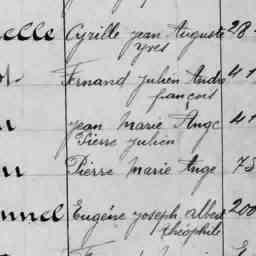 elle Cyrille Jean Auguste 28
Yves
Fernand Julien André 41
françois
Jean Marie Ange 41
Pierre Julien
Pierre Marie Ange 75
nnel Eugène Joseph albert 200
théophile